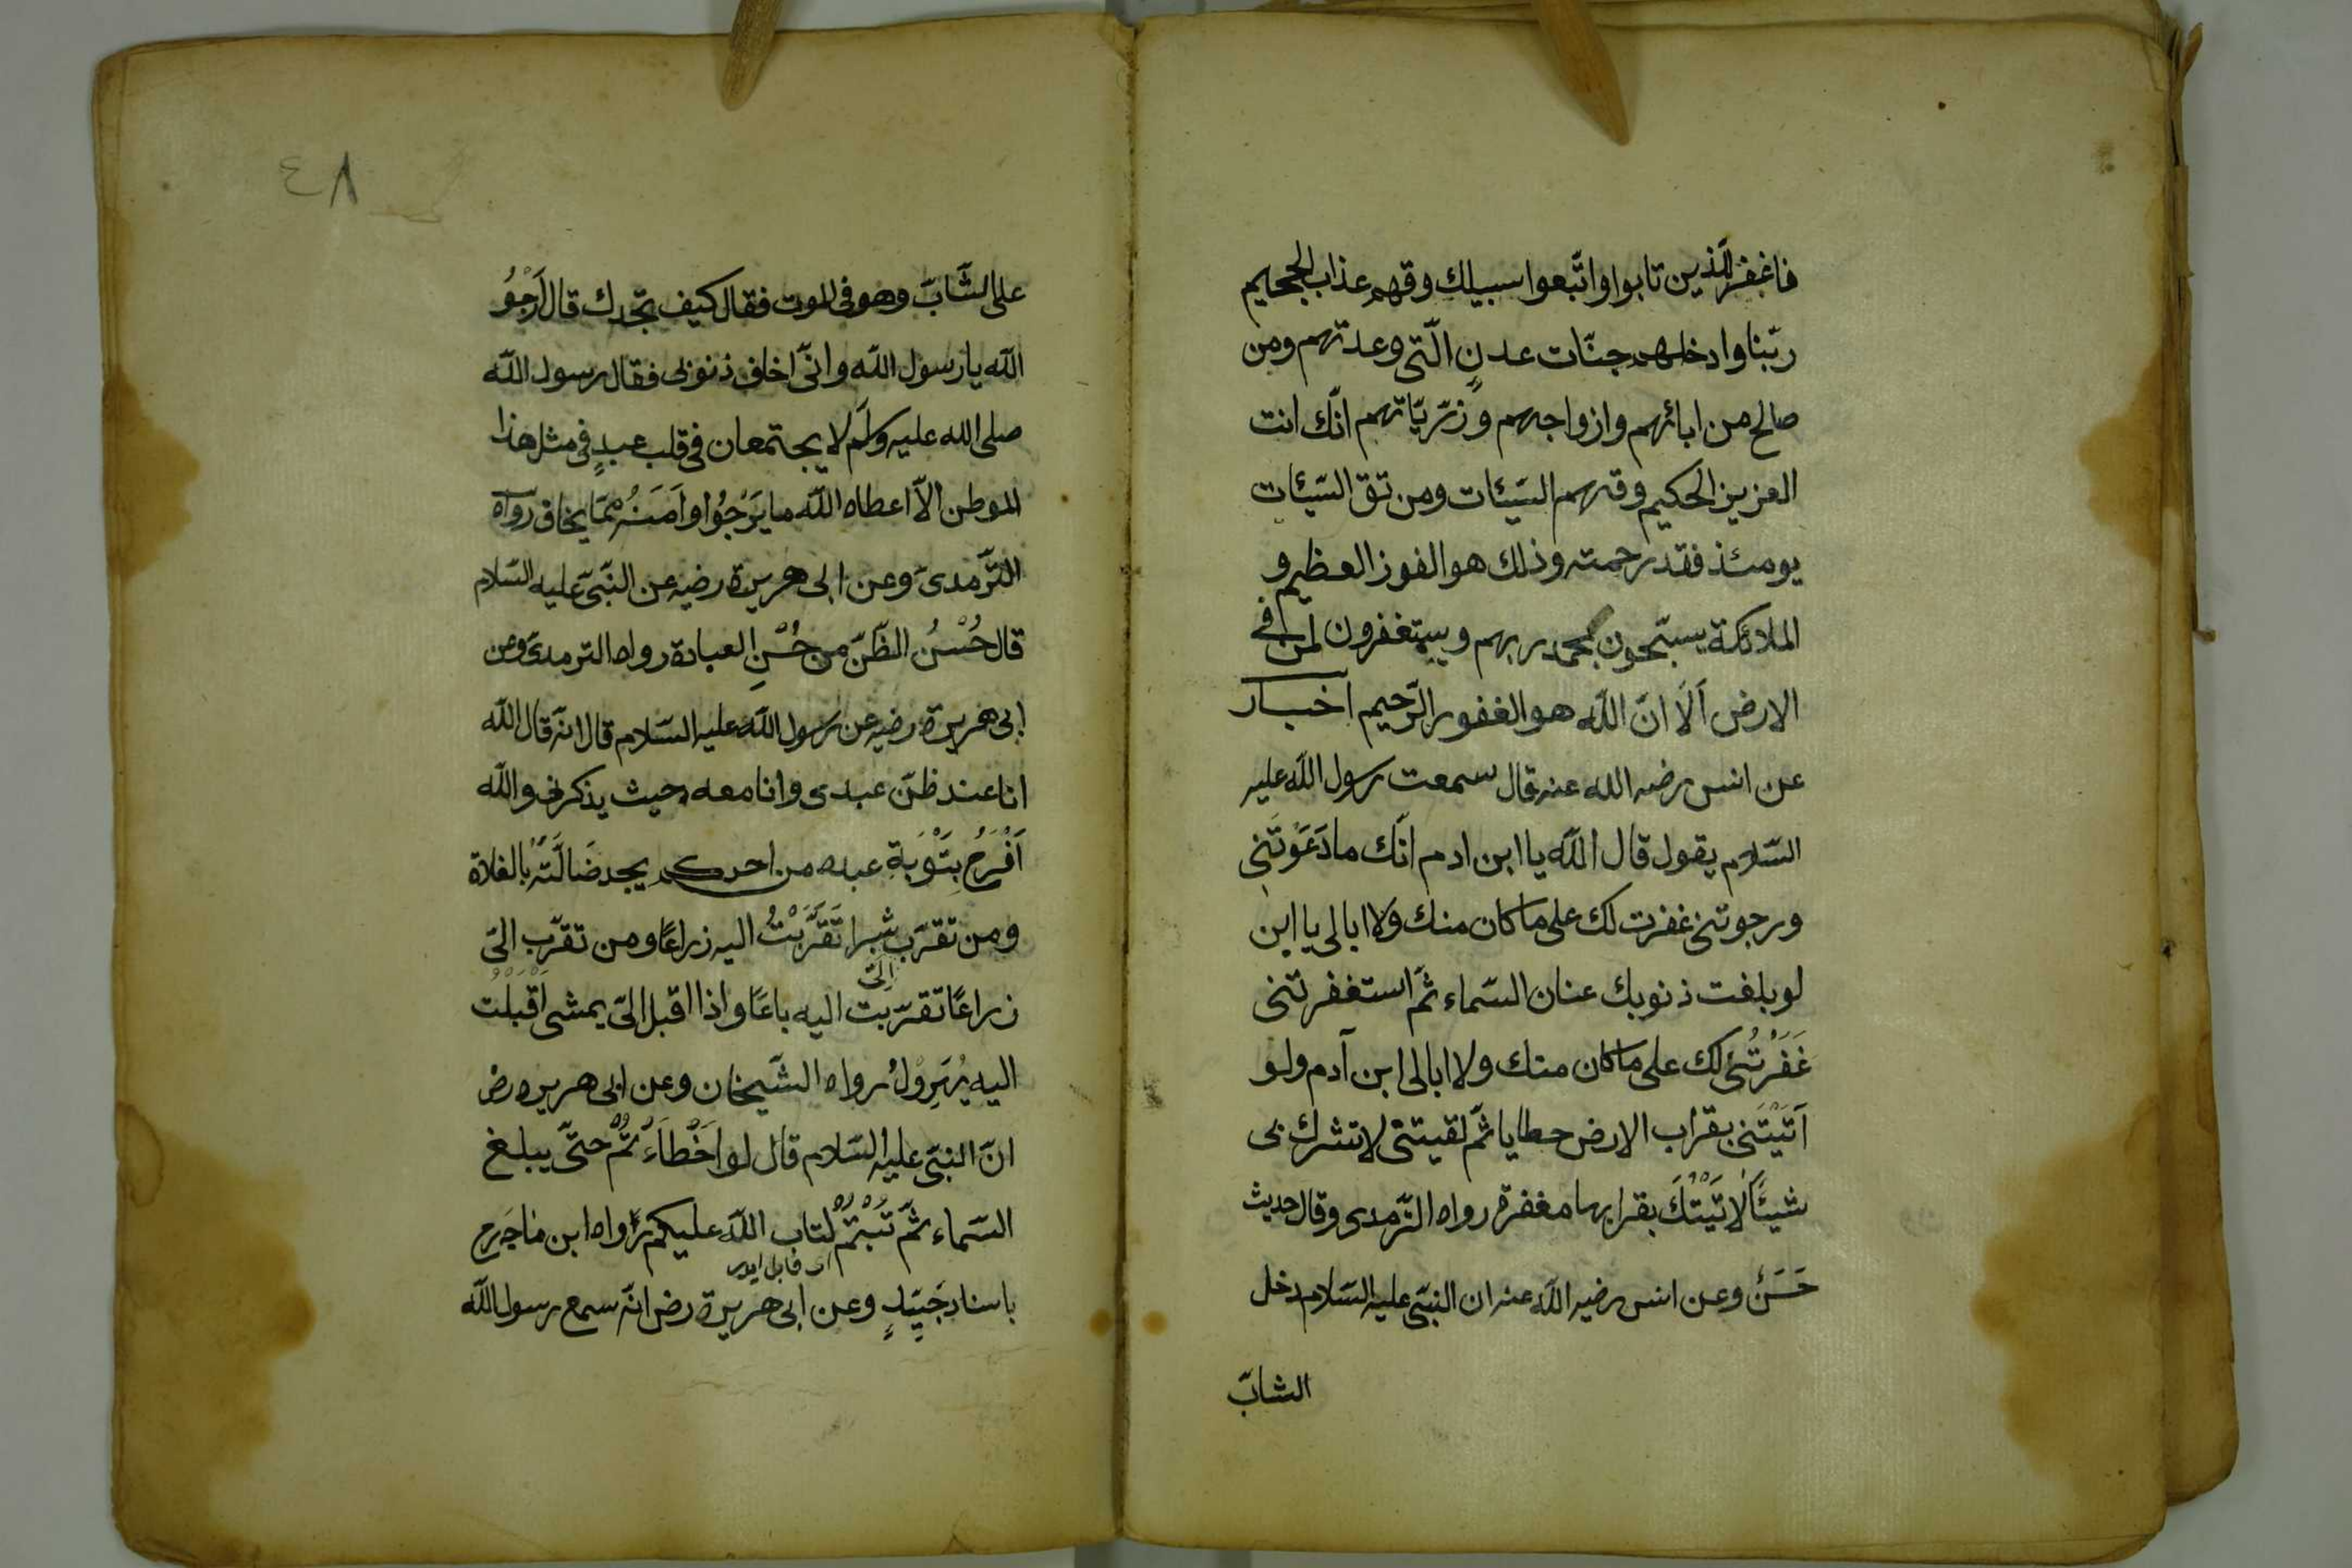 فاغفر للذين تابوا واتّبعوا سبيلك وقهم عذاب الجحيم
ربّنا وادخلهم جنّات عدنٍ الّتى وعدتهم ومن
صالح من ابائهم وازواجهم وزرّيّاتهم انّك انت
العزيز الحكيم وقهم السّيّئات ومن تق السّيّئات
يومئذ فقد رحمته وذلك هو الفوز العظيم و
الملائكة يسبّحون بحمد ربهم ويستغفرون لمن فى
الارض اَلَا انّ اللّه هو الغفور الرّحيم اخبار
عن انس رضيه الله عنه قال سمعت رسول اللّه عليه
السّلام يقول قال اللّه يا ابن ادم انّك ما دَعَوْتَنِى
ورجوتنى غفرت لك على ما كان منك ولا ابالى يا ابن
لو بلغت ذنوبك عنان السّماء ثمّ استغفرتنى
غَفَرْتُ لك على ما كان منك ولا ابالى ابن آدم ولو
اَتَيْتَنى بقراب الارض خطايا ثمّ لقيتنى لا تشرك بى
شيئًا لَاَتَيْتُكَ بقرابها مغفرة رواه التّرمدى وقال حديث
حَسَنٌ وعن انس رضيه اللّه عنه ان النبىّ عليه السّلام دخل
الشابّ
٤٨
على الشَّابّ وهو فى الموت فقال كيف تجدك قال اَرْجُوْ
اللّه يا رسول اللّه وانّى اخاف ذنوبى فقال رسول اللّه
صلى الله عليه وسلم لا يجتمعان فى قلب عبدٍ فى مثل هذا
الموطن الاّ اعطاه اللّه ما يَرْجُوْا واَمَنَهُ ممّا يخاف رواه
التّرمدىّ وعن ابى هريرة رضيه عن النّبىّ عليه السّلام
قال حُسْنُ الظّنّ من حُسْنِ العبادة رواه الترمدى وعن
ابى هريرة رضيه عن رسول اللّه عليه السّلام قال انه قال اللّه
انا عند ظنّ عبدى وانا معه حيث يذكرنى واللّه
اَفْرَحُ بِتَوْبَةِ عبده من احدكم يجد ضَالَّتَهُ بالفلاة
ومن تقرّب شبرا تَقَرَّبْتُ اليه زراعًا ومن تقرّب الىّ
الىّ
زراعًا تقرّبت اليه باعًا واذا اقبل الىّ يمشى اَقْبَلْتُ
اليه يُهَرْوِلُ رواه الشّيخان وعن ابى هريره رض
انّ النبىّ عليه السّلام قال لو اَخْطَاءْتُمْ حتّى يبلغ
السّماء ثمّ تُبْتُمْ لتاب اللّه عليكم رواه ابن ماجه
باسناد جَيِّدٍ وعن ابى هريرة رض انّه سمع رسول اللّه